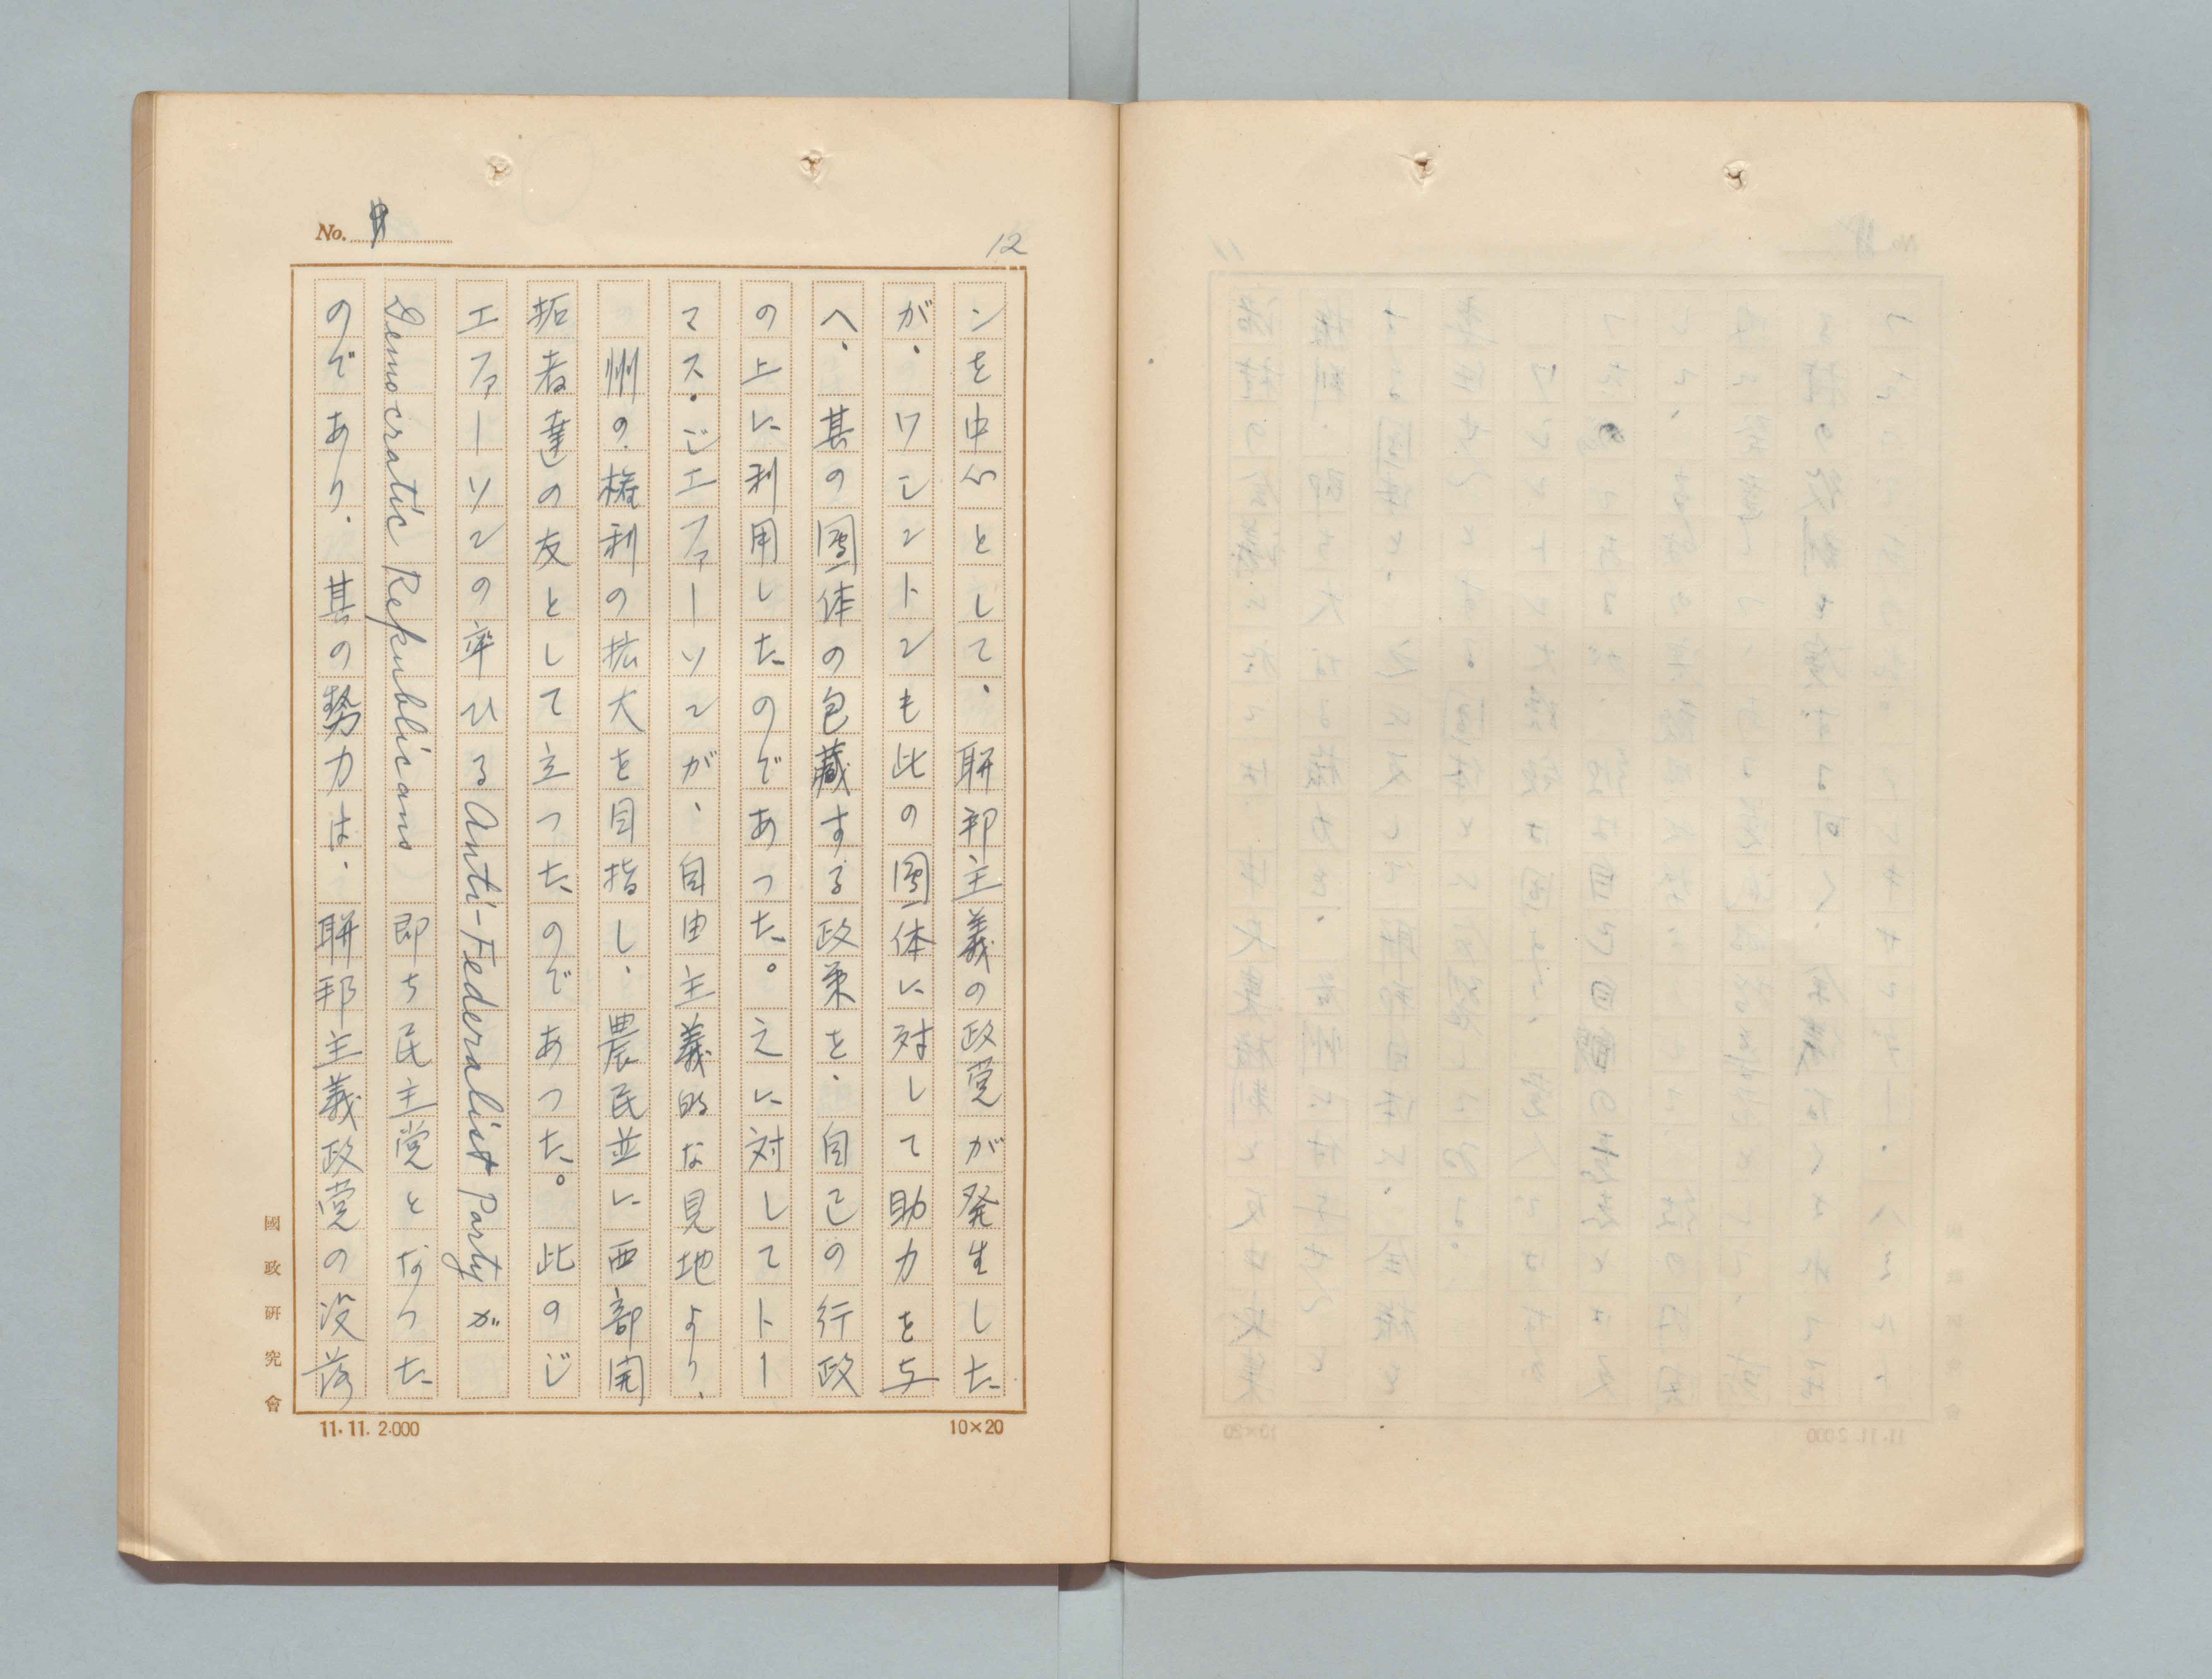 No.
12
ンを中心として、聯邦主義の政党が発生した
が、ワシントンも此の團体に対して助力を与
へ、其の團体の包蔵する政策を、自己の行政
の上に利用したのであつた。之に対してトー
マス・ジエファーソンが、自由主義的な見地より、
州の権利の拡大を目指し、農民並に西部開
拓者達の友として立つたのであつた。此のジ
エファーソンの率ひるAnti-Federalist Partyが
Democratic Republicans 即ち民主党となつた
のであり、其の勢力は、聯邦主義政党の没落
國政研究會
11.11. 2.000
10×20